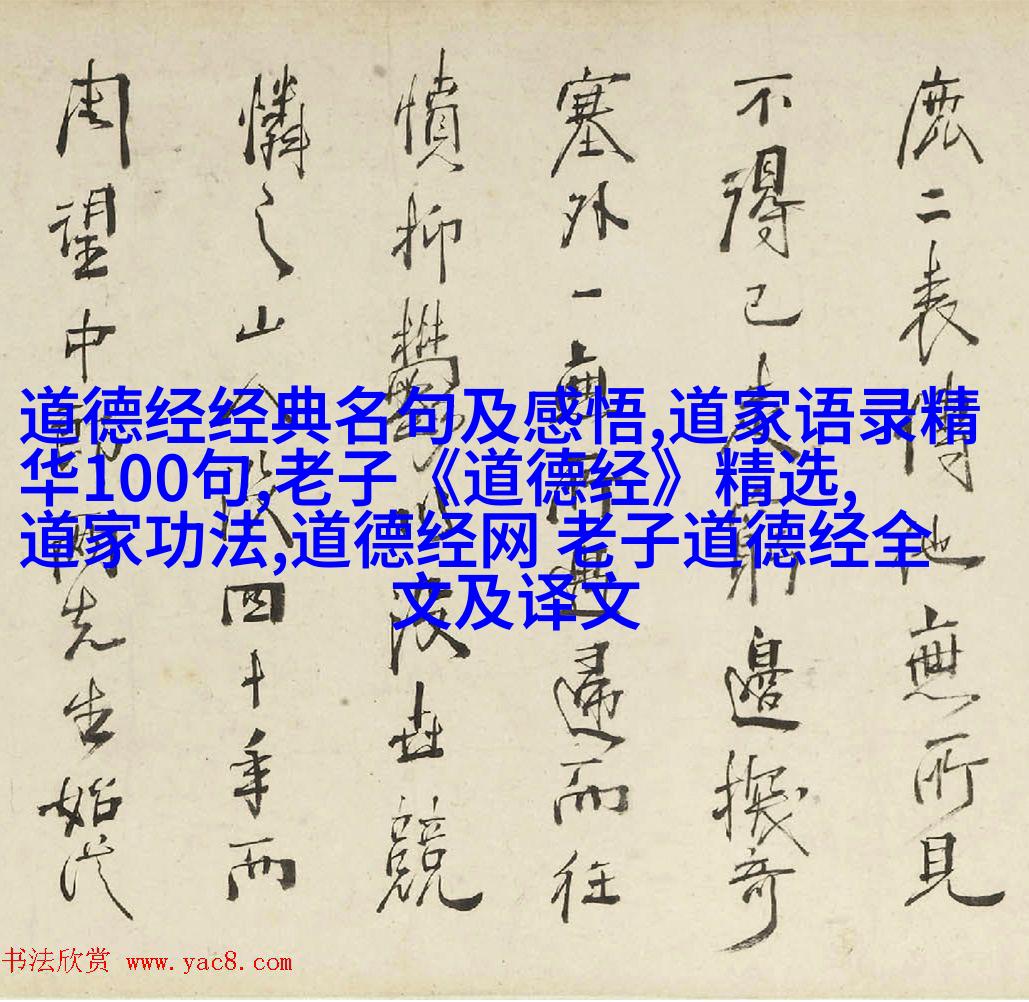 道德经经典名句及感悟,道家语录精
华100句,老子《道德经》精选,
道家功法,道德经网 老子道德经全
文及译文
二表傳他無所見
不得已窮邊探奇
塞外一無所遇歸而往
憤抑鬱没世競
憐之山谷没四十年而
周望中郎兩先生始從
书法欣赏 www.yac8.com